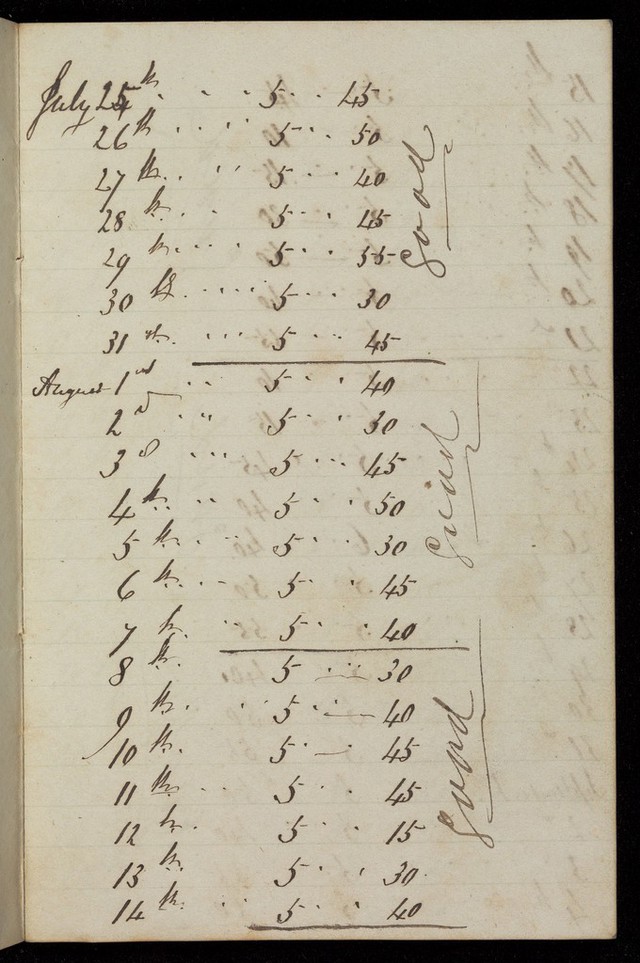 July 25th . . . 5 . . 45
26th . . . . 5 . . 50
27th . . . 5 . . 40
28th . . 5 . . 45
29th . . . . 5 . . 55
30th . . . . . 5 . . 30
31st . . . 5 . . 45
good
August 1st . . 5 . . 40
2d . . 5 . . 30
3d . . . 5 . . . 45
4th . . 5 . . 50
5th . . . 5 . . 30
6th . . 5 . . 45
7th . . 5 . . 40
good
8th. 5 . . . 30
9th . . . 5 . . 40
10th. 5 . . 45
11th . . 5 . . 45
12th . 5 . . 15
13th. 5 . . 30
14th . . 5 . . 40
good